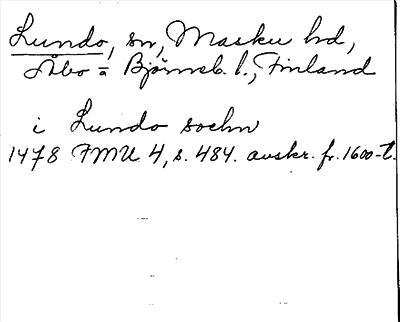 Lundo, sn, Masku hd,
Åbo = Björneb. l., Finland
i Lundo sochn
1478 FMU 4, s. 484. avskr. fr. 1600-t.